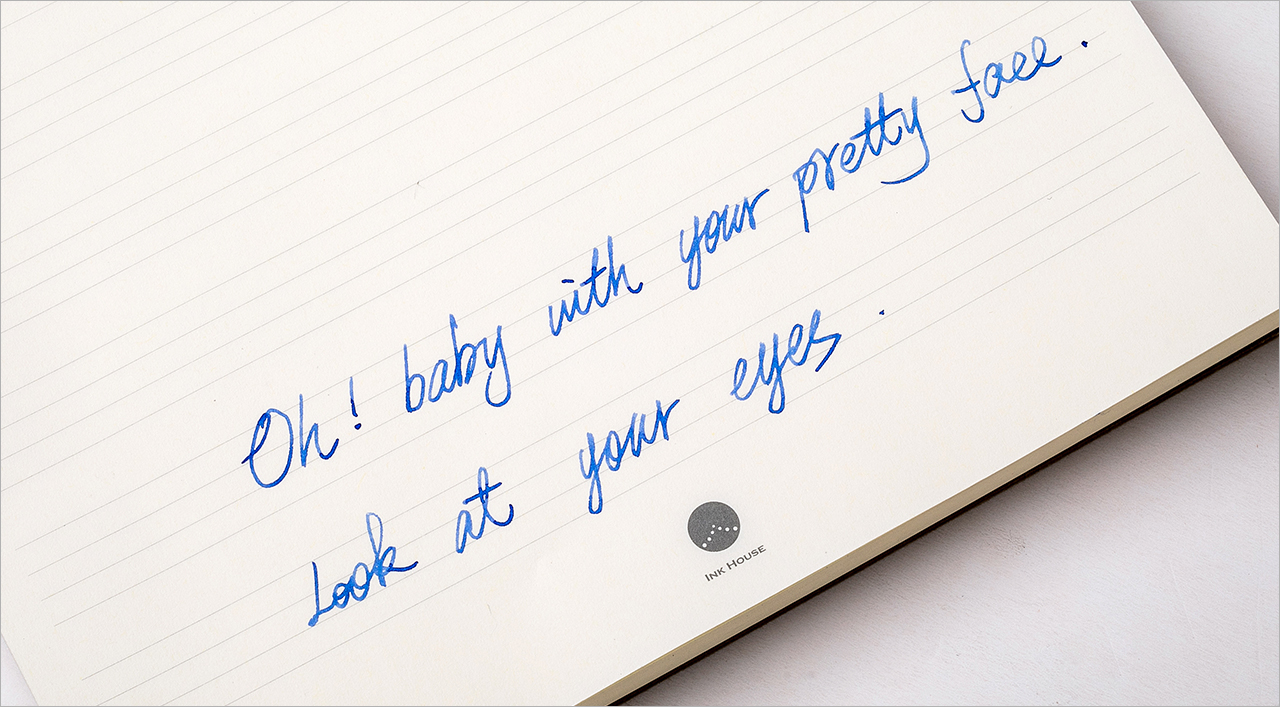 Oh! baby with your pretty face.
Look at your eyes.
INK HOUSE